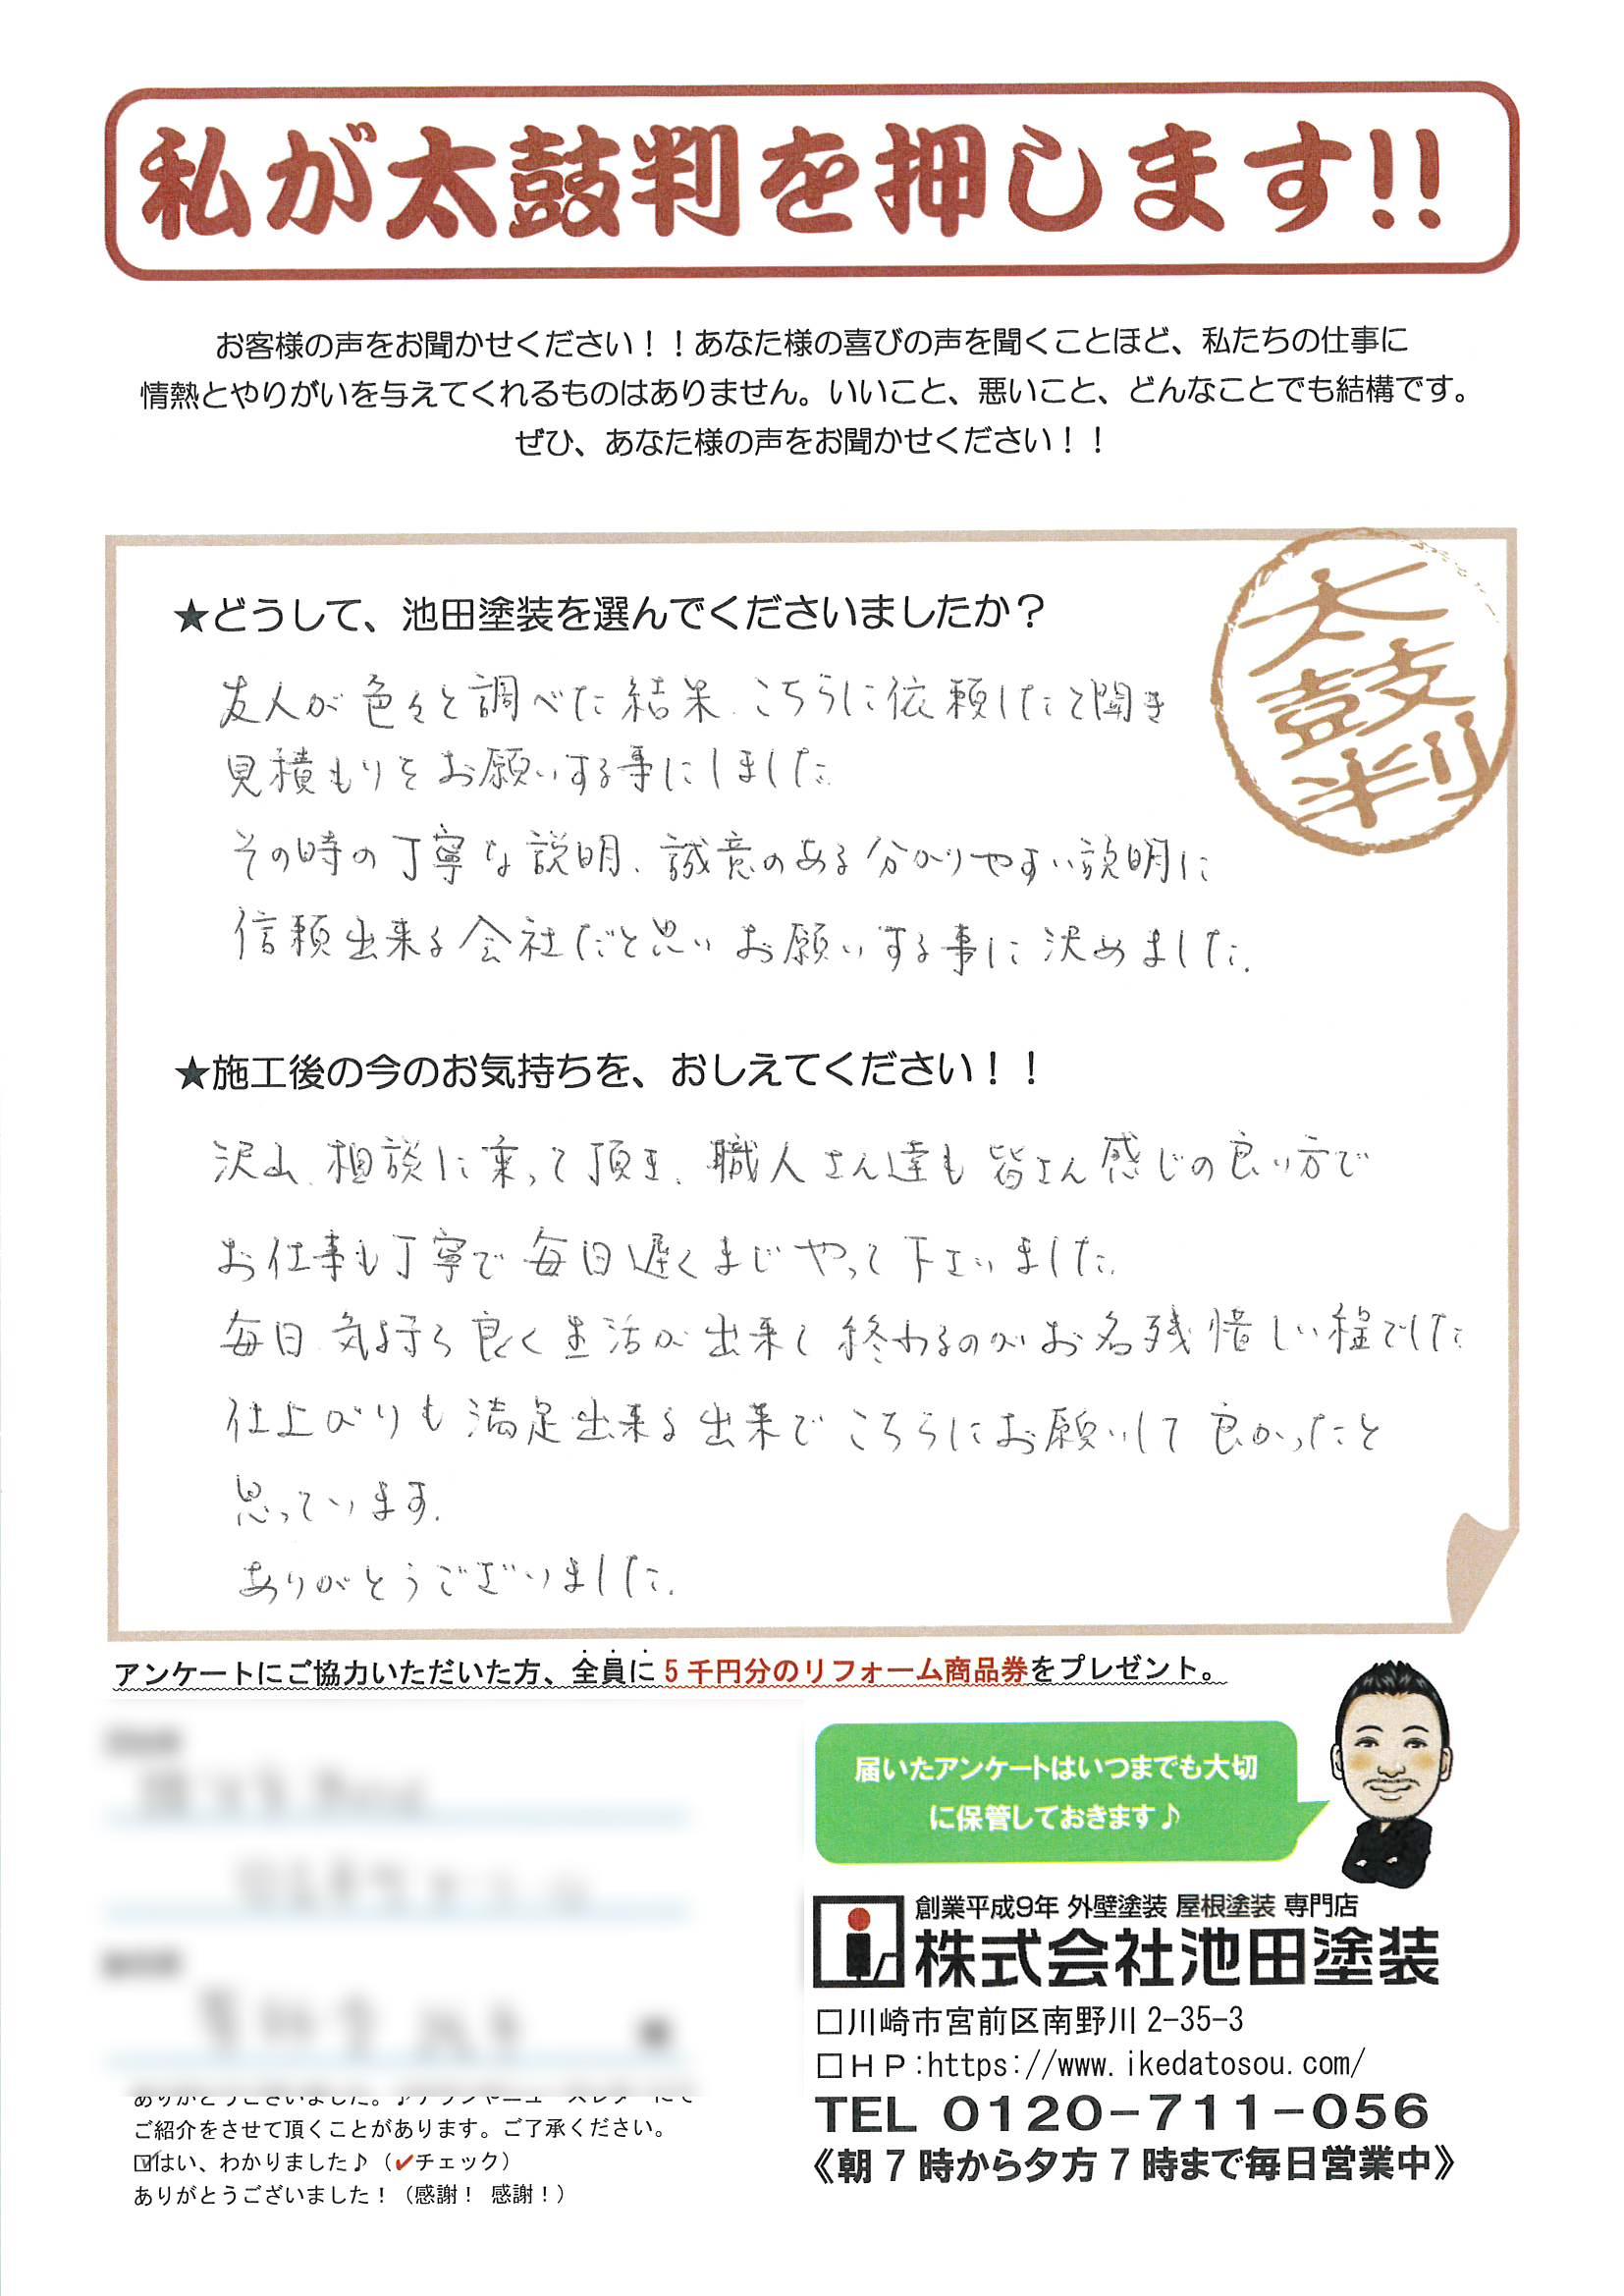 私が太鼓判を押します!!
お客様の声をお聞かせください！！あなた様の喜びの声を聞くことほど、私たちの仕事に
情熱とやりがいを与えてくれるものはありません。いいこと、悪いこと、どんなことでも結構です。
ぜひ、あなた様の声をお聞かせください！！
太鼓判
★どうして、池田塗装を選んでくださいましたか？
友人が色々と調べた結果、こちらに依頼したと聞き
見積もりをお願いする事にしました。
その時の丁寧な説明、誠意のある分かりやすい説明に
信頼出来る会社だと思いお願いする事に決めました。
★施工後の今のお気持ちを、おしえてください！！
沢山、相談に乗って頂き、職人さん達も皆さん感じの良い方で
お仕事も丁寧で毎日遅くまじやって下さいました。
毎日気持ち良く生活が出来て終わるのがお名残惜しい程でした
仕上がりも満足出来る出来でこちらにお願いして良かったと
思っています。
ありがとうございました。
アンケートにご協力いただいた方、全員に5千円分のリフォーム商品券をプレゼント。
届いたアンケートはいつまでも大切
に保管しておきます♪
創業平成9年 外壁塗装 屋根塗装 専門店
株式会社池田塗装
□川崎市宮前区南野川2-35-3
□ＨＰ:https://www.ikedatosou.com/
TEL 0120-711-056
《朝7時から夕方7時まで毎日営業中》
ありがとうございました。♪チラシやニュースレターにて
ご紹介をさせて頂くことがあります。ご了承ください。
☑はい、わかりました♪（✔チェック）
ありがとうございました！（感謝！ 感謝！）